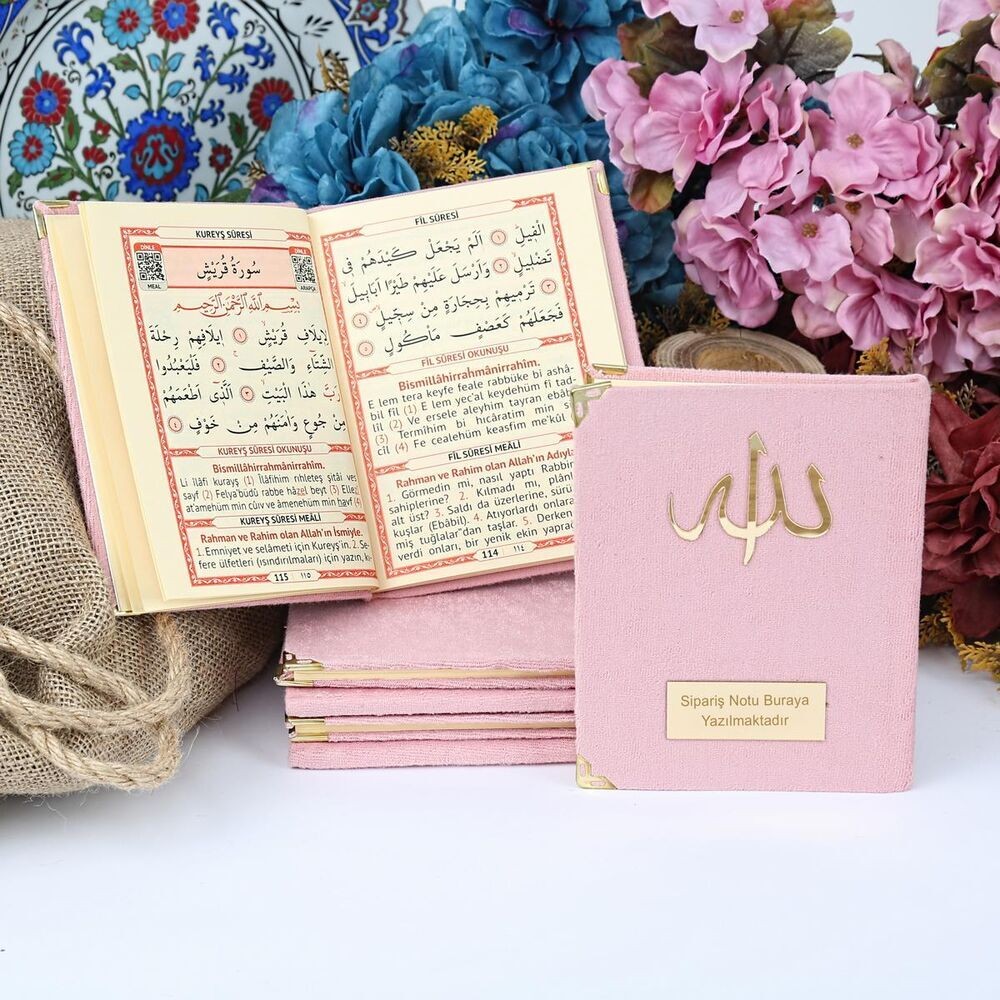 KUREYŞ SÛRESİ
DİNLE
DİNLE
سُورَةُ قُرَيْشٍ
MEAL
ARAPÇA
بِسْمِ اللّٰهِ الرَّحْمٰنِ الرَّحِيمِ
لِإِيلَافِ قُرَيْشٍ ﴿١﴾ إِيلَافِهِمْ رِحْلَةَ
الشِّتَاءِ وَالصَّيْفِ ﴿٢﴾ فَلْيَعْبُدُوا
رَبَّ هٰذَا الْبَيْتِ ﴿٣﴾ الَّذِي أَطْعَمَهُمْ
مِنْ جُوعٍ وَاٰمَنَهُمْ مِنْ خَوْفٍ ﴿٤﴾
KUREYŞ SÛRESİ OKUNUŞU
Bismillâhirrahmânirrahîm.
Li îlâfi kurayş (1) Îlâfihim rihleteş şitâi ves
sayf (2) Felya'büdû rabbe hâzel beyt (3) Ellez
at'amehüm min cûıv ve âmenehüm min havf (4)
KUREYŞ SÛRESİ MEÂLİ
Rahman ve Rahim olan Allah'ın İsmiyle.
1. Emniyet ve selâmeti için Kureyş'in. 2. Se-
fere ülfetleri (ısındırılmaları) için yazın, kı
115 ١١٥
FİL SÛRESİ
الْفِيلِ ﴿١﴾ اَلَمْ يَجْعَلْ كَيْدَهُمْ فِي
تَضْلِيلٍ ﴿٢﴾ وَاَرْسَلَ عَلَيْهِمْ طَيْرًا اَبَابِيلَ
﴿٣﴾ تَرْمِيهِمْ بِحِجَارَةٍ مِنْ سِجِّيلٍ ﴿٤﴾
فَجَعَلَهُمْ كَعَصْفٍ مَأْكُولٍ ﴿٥﴾
FİL SÛRESİ OKUNUŞU
Bismillâhirrahmânirrahîm.
E lem tera keyfe feale rabbüke bi ashâ-
bil fîl (1) E lem yec'al keydehüm fî tad-
(2) Ve ersele aleyhim tayran ebâb
(3) Termîhim bi hıcâratim min s
cîl (4) Fe cealehüm keasfim me'kûl
FİL SÛRESİ MEÂLİ
Rahman ve Rahim olan Allah'ın Adıyla
1. Görmedin mi, nasıl yaptı Rabbin
sahiplerine? 2. Kılmadı mı, plânl
alt üst? 3. Saldı da üzerlerine, sürü
kuşlar (Ebâbil). 4. Atıyorlardı onlara
miş tuğlalar"dan taşlar. 5. Derken
verdi onları, bir yenik ekin yaprağ
114 ١١٤
الله
Sipariş Notu Buraya
Yazılmaktadır